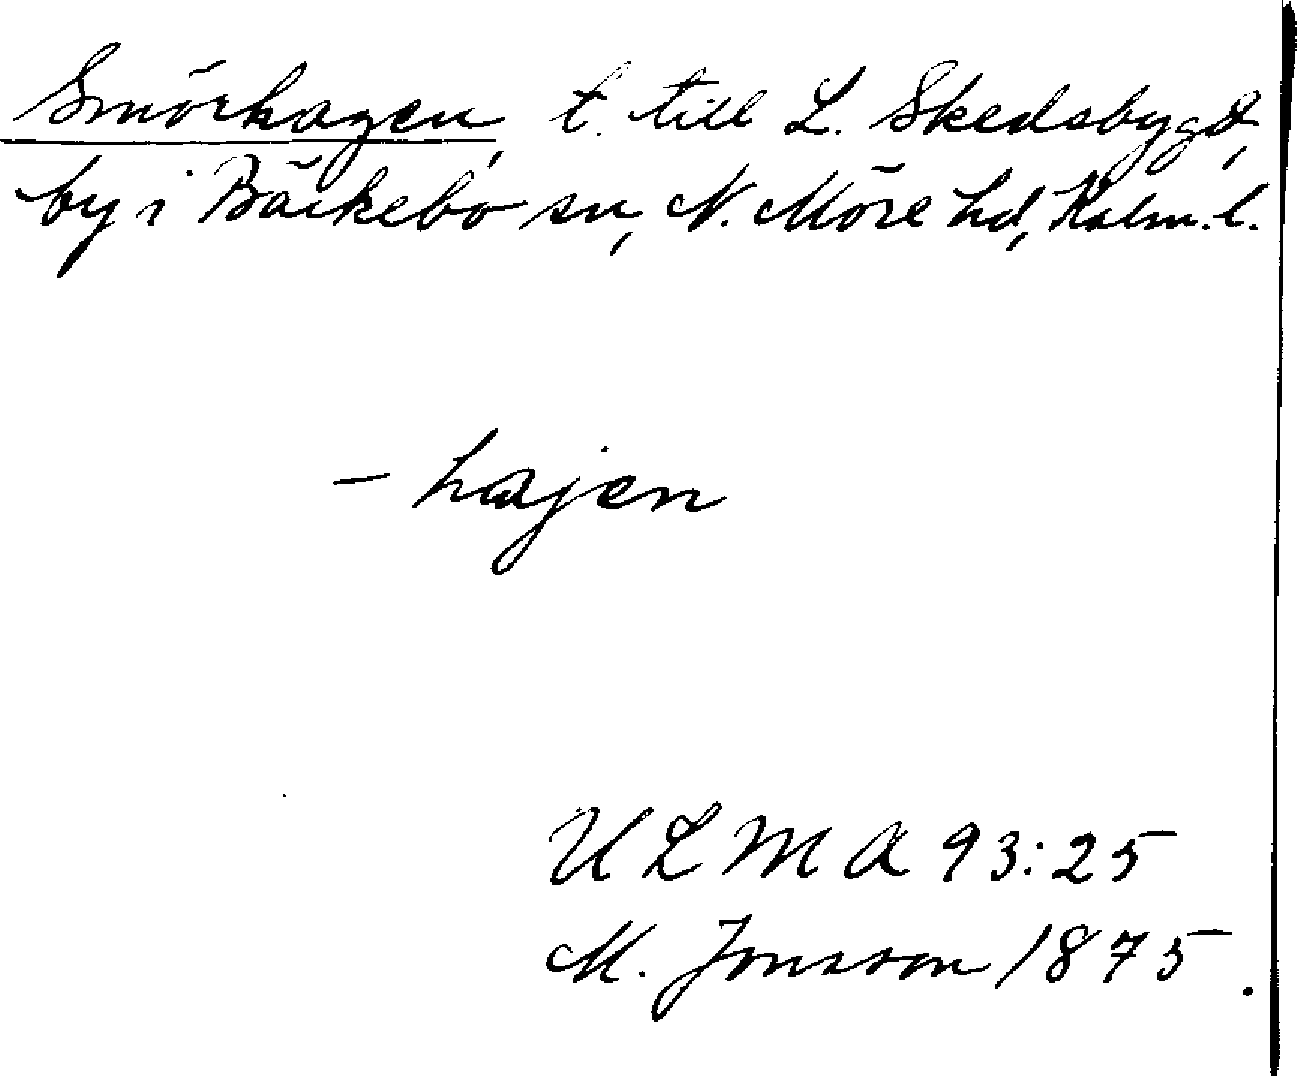 Smörhagen, t. till L. Skedsbygd,
by i Bäckebo sn, N. Möre hd, Kalm. l.
- hajen
ULMA 93:25
M. Jonsson 1875.